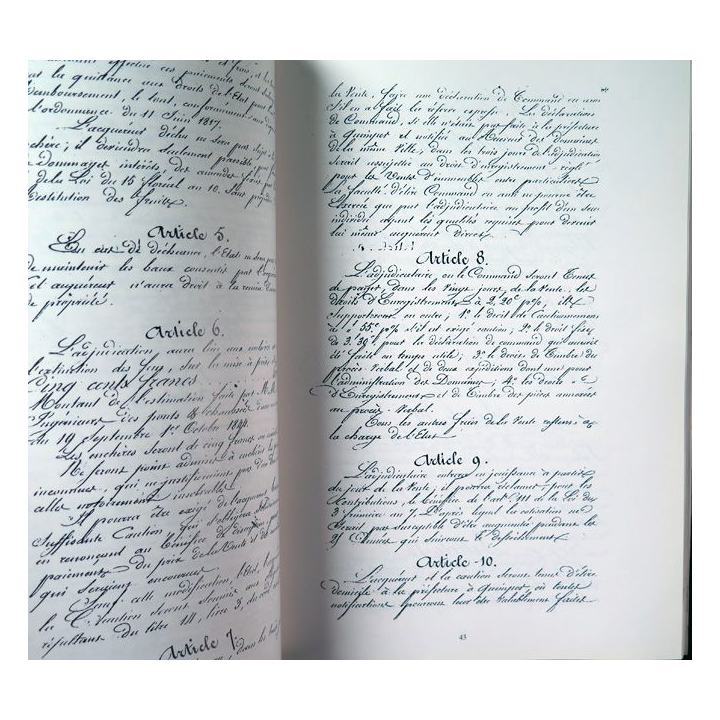 effectue ces paiements
la quittance aux Droits de l'Etat
remboursement, le tout, conformément aux
l'ordonnance du 11 Juin 1817.
L'acquéreur déchu ne sera pas sujet à
enchère; il deviendra seulement passible
dommages intérêts, des amendes
de la Loi du 15 floréal an 10. Sans
restitution des fruits.
Article 5.
En cas de déchéance, l'Etat
de maintenir les baux consentis par
et acquéreur n'aura droit à la remise
de propriété.
Article 6.
L'adjudication aura lieu aux
l'extinction des feux, sur la mise à prix
Cinq cents francs
Montant de l'estimation faite par M.M.
Ingénieurs des ponts & chaussées
du 19 Septembre 1er Octobre 1841.
Les enchères seront de cinq francs
Ne seront point admises à enchérir
inconnues, qui ne justifieraient pas
celles notoirement insolvables.
Il pourra être exigé de l'acquéreur
suffisante Caution, qui s'obligera
en renonçant au bénéfice de
paiement du prix de la Vente et
qui seraient encourues
Sauf cette modification, l'Etat,
la Caution seront soumis aux
résultant du titre 14, livre 3, du
Article 7.
la Vente, faire une déclaration de Command ou ami
s'il en a fait la réserve expresse. Les déclarations
de Command, si elle n'était pas faite à la préfecture
à Quimper et notifiée au Receveur des Domaines
de la même Ville, dans les trois jours de l'adjudication
serait assujettie au droit d'enregistrement réglé
pour la Vente d'immeubles entre particuliers
La faculté d'élire Command ou ami ne pourra être
Exercée que par l'adjudicataire au profit d'un seul
individu ayant les qualités requises pour devenir
lui même acquéreur direct.
Article 8.
L'adjudicataire, ou le Command seront tenus
de payer dans les vingt jours de la Vente, les
droits d'Enregistrement à 2,20c p%, ils
supporteront en outre; 1º le droit de Cautionnement
à 55c p% s'il est exigé caution; 2º le droit fixe
de 2,20c pour la déclaration de command qui aurait
été faite en temps utile; 3º le droit de timbre du
procès Verbal et de deux expéditions dont une pour
l'administration des Domaines; 4º les droits
d'Enregistrement et de timbre des pièces annexées
au procès-Verbal.
Tous les autres frais de la Vente restent à
la charge de l'Etat
Article 9.
L'adjudicataire entrera en jouissance à partir
du jour de la Vente, il pourra réclamer, pour les
Contributions, le bénéfice de l'art 111 de la Loi du
3 frimaire an 7, D'après lequel la cotisation ne
serait pas susceptible d'être augmentée pendant les
25 Années qui suivront le défrichement
Article-10.
L'acquéreur et la caution seront tenus d'élire
domicile à la préfecture à Quimper, où toutes
notifications pourront leur être valablement faites
43